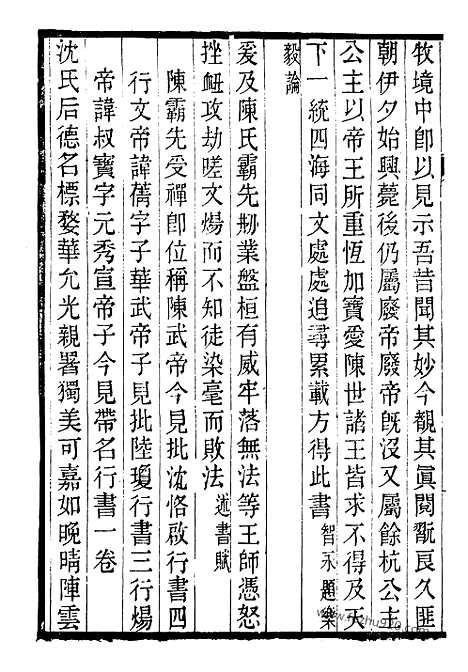 牧境中卽以見示吾昔聞其妙今覩其眞閱翫良久匪
朝伊夕始興薨後仍屬廢帝廢帝旣沒又屬餘杭公主
公主以帝王所重恆加寶愛陳世諸王皆求不得及天
下一統四海同文處處追尋累載方得此書智永題樂
毅論
爰及陳氏霸先刱業盤桓有威牢落無法等王師憑怒
挫衄攻劫嗟文煬而不知徒染毫而敗法述書賦
陳霸先受禪卽位稱陳武帝今見批沈恪啟行書四
行文帝諱蒨字子華武帝子見批陸瓊行書三行煬
帝諱叔寶字元秀宣帝子今見帶名行書一卷
沈氏后德名標婺華允光親署獨美可嘉如晚晴陣雲